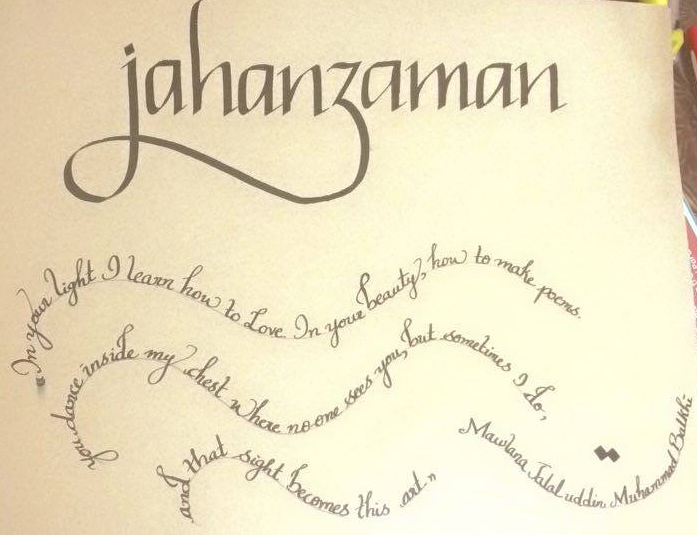 jahanzaman
"In your light I learn how to Love In your beauty, how to make poems.
you dance inside my chest where no one sees you, but sometimes I do,
and that sight becomes this art"
Mawlana Jalal uddin Muhammad Balkhi